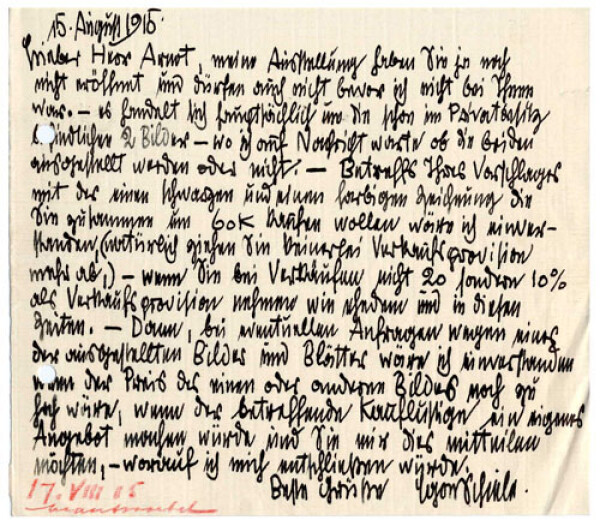 15. August 1915.
Lieber Herr Arnot, meine Ausstellung haben Sie ja noch
nicht eröffnet und dürfen auch nicht bevor ich nicht bei Ihnen
war. – es handelt sich hauptsächlich um die schon im Privatbesitz
befindlichen 2 Bilder – wo ich auf Nachricht warte ob die beiden
ausgestellt werden oder nicht. – Betreffs Ihres Vorschlages
mit der einen schwarzen und einen farbigen Zeichnung die
Sie zusammen um 60K kaufen wollen wäre ich einver-
standen, (natürlich ziehen Sie keinerlei Verkaufsprovision
mehr ab,) – wenn Sie bei Verkäufen nicht 20 sondern 10%
als Verkaufsprovision nehmen wie ehedem und in diesen
Zeiten. – Dann, bei eventuellen Anfragen wegen eines
der ausgestellten Bilder und Blätter wäre ich einverstanden
wenn der Preis des einen oder anderen Bildes noch zu
hoch wäre, wenn der betreffende Kauflustige ein eigenes
Angebot machen würde und Sie mir dies mitteilen
möchten, – worauf ich mich entschließen würde.
Beste Grüße Egon Schiele.
17. VIII 15
beantwortet